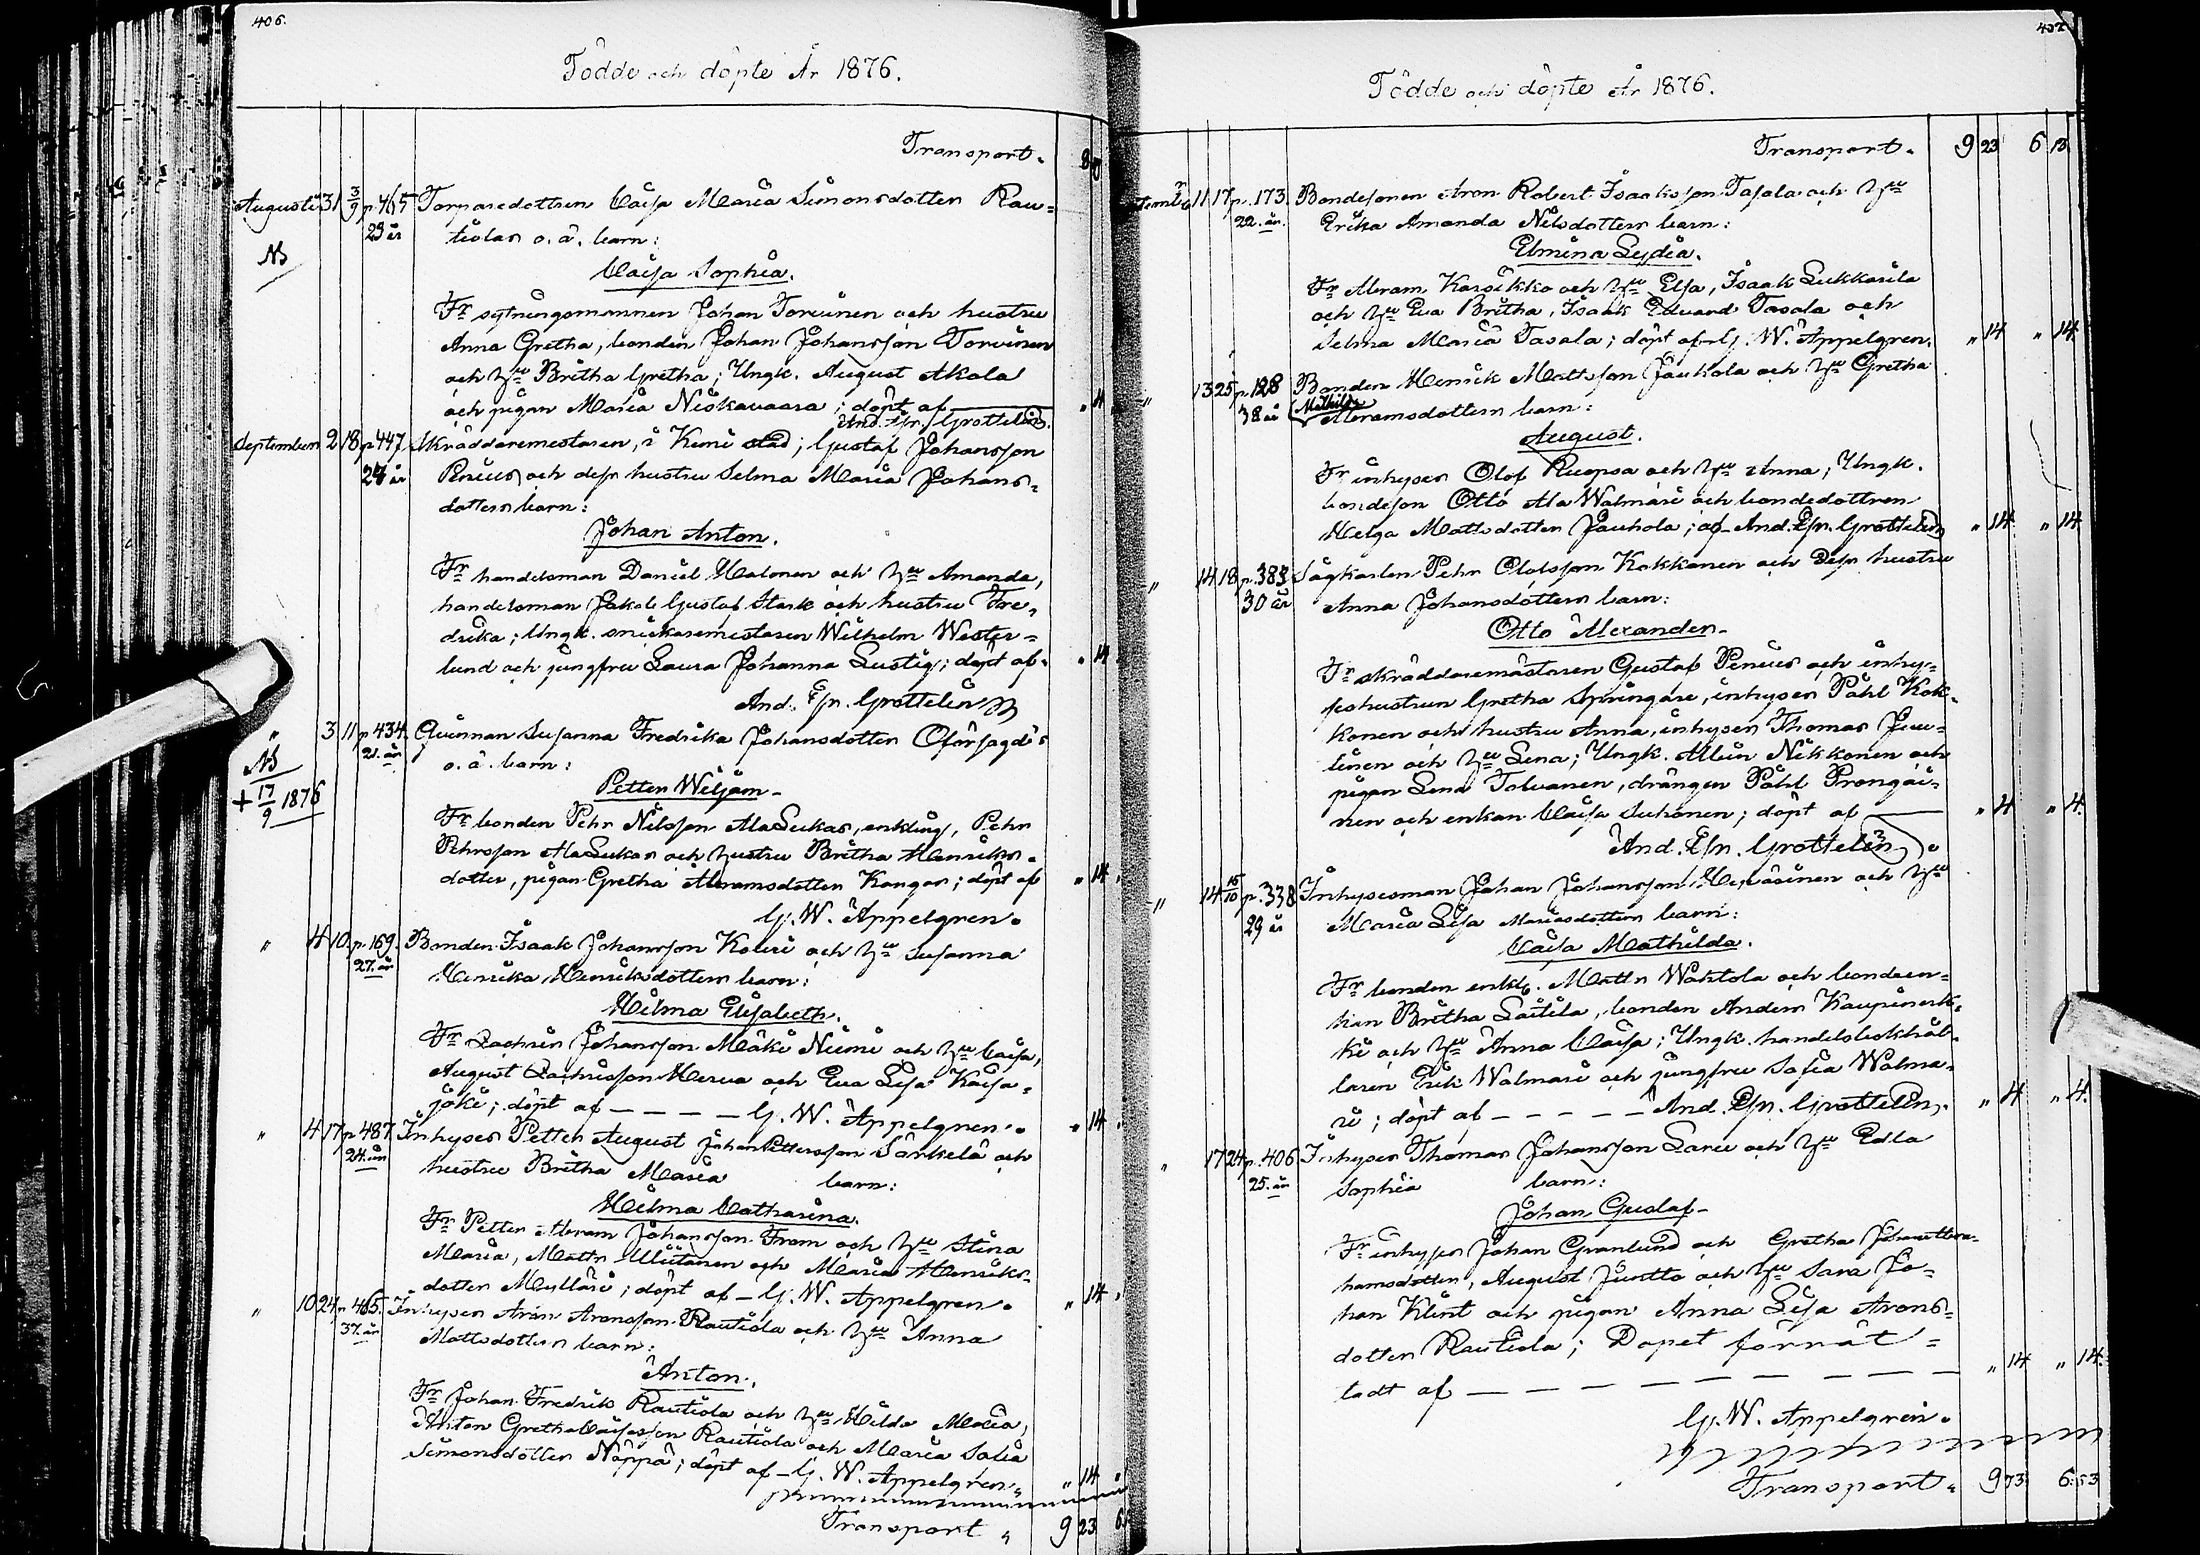 406.
Födde och döpte År 1876.
Transport.
Augusti 31 3/9 p. 465 Torparedottren Caisa Maria Simonsdotter Rau-
23 år tiolas o. ä. barn:
NB Caisa Sophia.
Fr sytningsmannen Johan Torvinen och hustru
Anna Gretha, bonden Johan Johansson Torvinen
och hu Britha Gretha; Ungk. August Akola
och pigan Maria Niskavaara; döpt af
And. Efr. Grottelin.
September 2 18 p 447. Skräddaremestaren, i Kemi stad; Gustaf Johansson
24 år Penius och dess hustru Selma Maria Johans-
dotters barn:
Johan Anton.
Fr handelsman Daniel Halonen och hu Amanda,
handelsman Jakob Gustaf Stark och hustru Fre-
drika; Ungk. snickaremestaren Wilhelm Wester-
lund och jungfru Laura Johanna Lustig; döpt af " 14
And. Efr. Grottelin
" 3 11 p 434. Qvinnan Susanna Fredrika Johansdotter Oförsagd's
21. år o. ä. barn:
NB Petter Wiljam-
+ 17/9 1876
Fr bonden Pehr Nilsson AlaLukas, enkling, Pehr
Pehrsson AlaLukas och hustru Britha Henriks-
dotter, pigan Gretha Abramsdotter Kangas; döpt af " 14
G. W. Appelgren.
" 4 10 p. 169. Bonden Isaak Johansson Koivu och hu Susanna
27. år Henrika Henriksdotters barn:
Hilma Elisabeth.
Fr Zachris Johansson Mäki Niemi och hu Caisa,
August Zachrisson Herva och Eva Lisa Kaisa-
joki; döpt af — — — — G. W. Appelgren. " 14
" 4 17 p 487. Inhyses Petter August Johan Pettersson Särkelä och
24. år hustru Britha Maria barn:
Hilma Catharina.
Fr Petter Abram Johansson From och hu Stina
Maria, Matts Uliitanen och Maria Henriks-
dotter Mylläri; döpt af — G. W. Appelgren. " 14
" 10 24 p 465. Inhyses Aron Aronsson Rautiola och hu Anna
37. år Mattsdotters barn:
Anton.
Fr Johan Fredrik Rautiola och hu Hilda Maria,
Anton Gretha Caisasson Rautiola och Maria Sofia
Simonsdotter Näppä; döpt af — G. W. Appelgren. " 14
Transport " 9 23
407.
Födde och döpte År 1876.
Transport. 9 23 6 13
11 17 p. 173. Bondesonen Aron Robert Isaksson Tasala och hu
22. år. Erika Amanda Nilsdotters barn:
Elmina Lydia.
Fr Abram Karsikko och hu Elsa, Isaak Lukkarila
och hu Eva Britha, Isaak Eduard Tasala och
Selma Maria Tasala; döpt af G. W. Appelgren. " 14 " 14.
" 13 25 p. 128 Bonden Henrik Mattsson Jauhola och hu Gretha
38 år Mathilda Abramsdotters barn:
August.
Fr inhyses Olof Ruopsa och hu Anna; Ungk.
bondeson Otto AlaWalmari och bondedottren
Helga Mattsdotter Jauhola; af And. Efr. Grottelin " 14. " 14.
" 14 18 p. 383 Sågkarlen Pehr Olofsson Kokkonen och dess hustru
30 år Anna Johansdotters barn:
Otto Alexander-
Fr skräddaremästaren Gustaf Penius och inhy-
seshustrun Gretha Springare, inhyses Påhl Kok-
konen och hustru Anna, inhyses Thomas Juu-
linen och hu Lena; Ungk. Albin Nikkonen och
pigan Lena Tolvanen, drängen Påhl Prongai-
nen och enkan Caisa Suhonen; döpt af " 4 " 4.
And. Efr. Grottelin.
" 14 15/10 p. 338 Inhysesman Johan Johansson Heinäsinen och hu
29 år Maria Lisa Mariasdotters barn:
Caisa Mathilda.
Fr bonden enkl. Matts Wahtola och bondeen-
kan Britha Laitila, bonden Anders Kaupinerk-
ki och hu Anna Caisa; Ungk. handelsbokhål-
laren Erik Walmari och jungfru Sofia Walma-
ri; döpt af — — — — — And. Efr. Grottelin. " 4 " 4.
" 17 24 p. 406 Inhyses Thomas Johansson Lariu och hu Edla
25. år Sophia barn:
Johan Gustaf-
Fr inhyses Johan Granlund och Gretha
hansdotter, August Juntto och hu Sara Jo-
han Klint och pigan Anna Lisa Arons-
dotter Rautiola; Dopet förrät-
tadt af — — — — — — — — " 14 " 14.
G. W. Appelgren.
Transport. 9 73 6 53